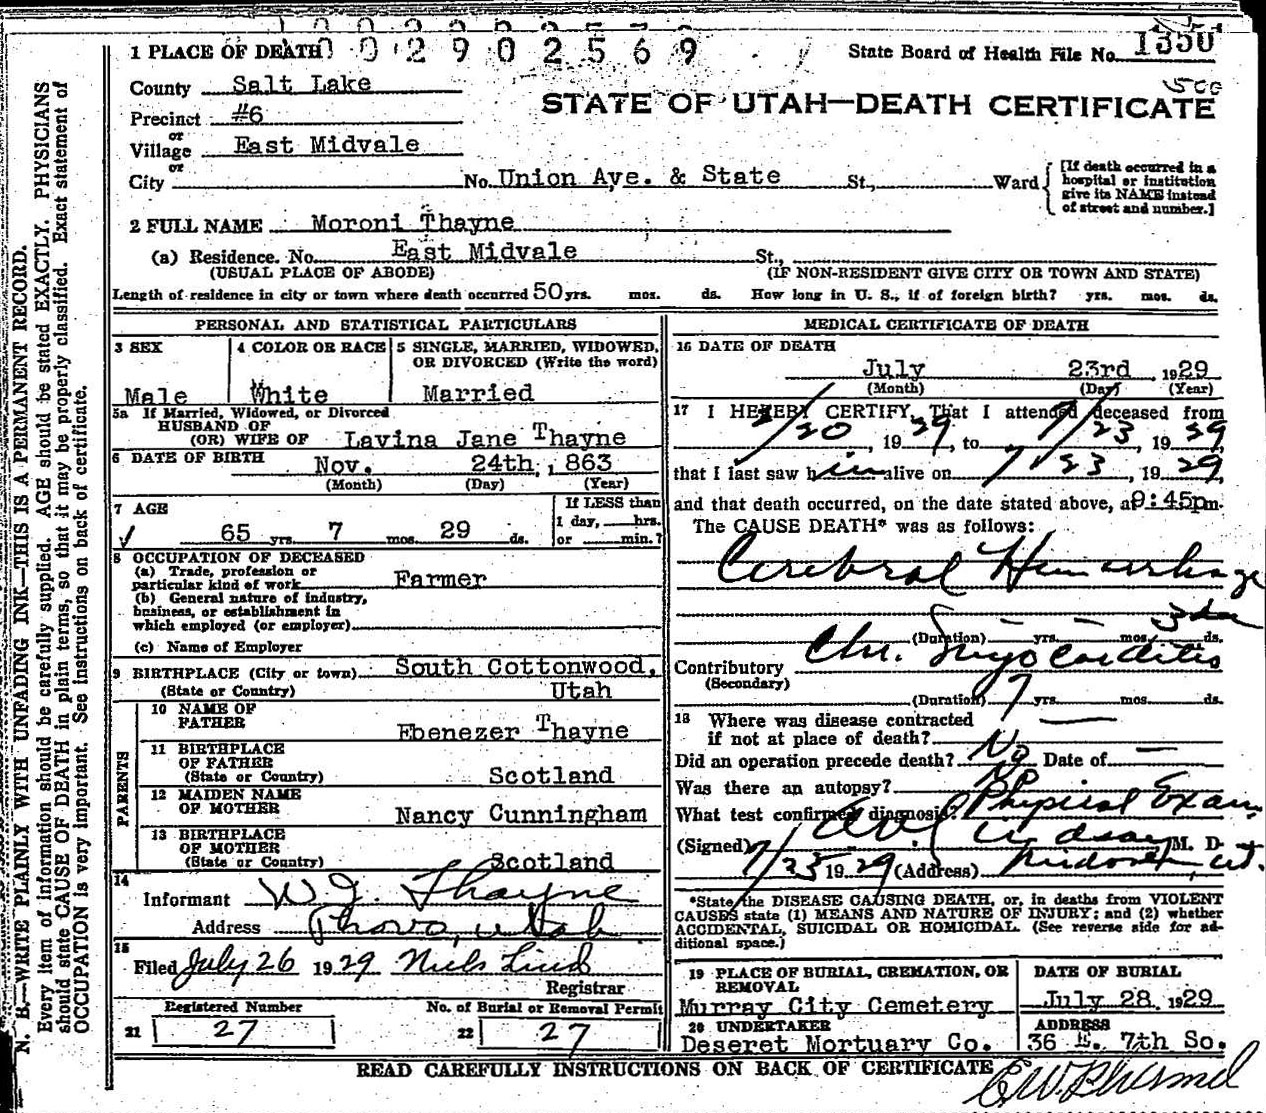 1 0 0 2 9 0 2 5 6 9
1 PLACE OF DEATH
State Board of Health File No. 1350
County Salt Lake
STATE OF UTAH—DEATH CERTIFICATE
Precinct #6
or
Village East Midvale
or
City No. Union Ave. & State St., Ward
[If death occurred in a
hospital or institution
give its NAME instead
of street and number.]
2 FULL NAME Moroni Thayne
(a) Residence. No. East Midvale St.,
(USUAL PLACE OF ABODE) (IF NON-RESIDENT GIVE CITY OR TOWN AND STATE)
Length of residence in city or town where death occurred 50 yrs. mos. ds. How long in U. S., if of foreign birth? yrs. mos. ds.
PERSONAL AND STATISTICAL PARTICULARS
3 SEX
Male
4 COLOR OR RACE
White
5 SINGLE, MARRIED, WIDOWED,
OR DIVORCED (Write the word)
Married
5a If Married, Widowed, or Divorced
HUSBAND OF
(OR) WIFE OF Lavina Jane Thayne
6 DATE OF BIRTH Nov. 24th, 1863
(Month) (Day) (Year)
7 AGE
65 yrs. 7 mos. 29 ds.
If LESS than
1 day, hrs.
or min.?
8 OCCUPATION OF DECEASED
(a) Trade, profession or
particular kind of work Farmer
(b) General nature of industry,
business, or establishment in
which employed (or employer)
(c) Name of Employer
9 BIRTHPLACE (City or town) South Cottonwood,
(State or Country) Utah
PARENTS
10 NAME OF
FATHER Ebenezer Thayne
11 BIRTHPLACE
OF FATHER
(State or Country) Scotland
12 MAIDEN NAME
OF MOTHER Nancy Cunningham
13 BIRTHPLACE
OF MOTHER
(State or Country) Scotland
14
Informant W. J. Thayne
Address Provo, Utah
15
Filed July 26 1929 Niels Lind
Registrar
Registered Number
21 27
No. of Burial or Removal Permit
22 27
MEDICAL CERTIFICATE OF DEATH
16 DATE OF DEATH
July 23rd, 1929
(Month) (Day) (Year)
17 I HEREBY CERTIFY, That I attended deceased from
, 1929, to 7/23, 1929
that I last saw him alive on 7/23, 1929,
and that death occurred, on the date stated above, at 9:45pm.
The CAUSE DEATH* was as follows:
Cerebral Hemorrhage
(Duration) — yrs. — mos. 3 ds.
Contributory Chr. Myocarditis
(Secondary)
(Duration) 7 yrs. mos. ds.
18 Where was disease contracted
if not at place of death? —
Did an operation precede death? No Date of —
Was there an autopsy? No
What test confirmed diagnosis? Physical Exam
(Signed) Lindsay M. D.
7/25 1929 (Address) Ut.
*State the DISEASE CAUSING DEATH, or, in deaths from VIOLENT
CAUSES state (1) MEANS AND NATURE OF INJURY; and (2) whether
ACCIDENTAL, SUICIDAL OR HOMICIDAL. (See reverse side for ad-
ditional space.)
19 PLACE OF BURIAL, CREMATION, OR
REMOVAL
Murray City Cemetery
DATE OF BURIAL
July 28 1929
20 UNDERTAKER
Deseret Mortuary Co.
ADDRESS
36 E. 7th So.
READ CAREFULLY INSTRUCTIONS ON BACK OF CERTIFICATE
N. B.—WRITE PLAINLY WITH UNFADING INK—THIS IS A PERMANENT RECORD.
Every item of information should be carefully supplied. AGE should be stated EXACTLY. PHYSICIANS
should state CAUSE OF DEATH in plain terms, so that it may be properly classified. Exact statement of
OCCUPATION is very important. See instructions on back of certificate.